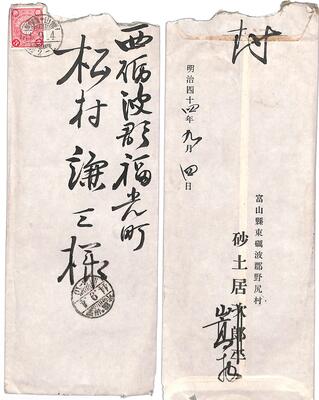 西礪波郡福光町
松村謙三様
封
明治四十四年九月四日
富山縣東礪波郡野尻村
砂土居次郎平